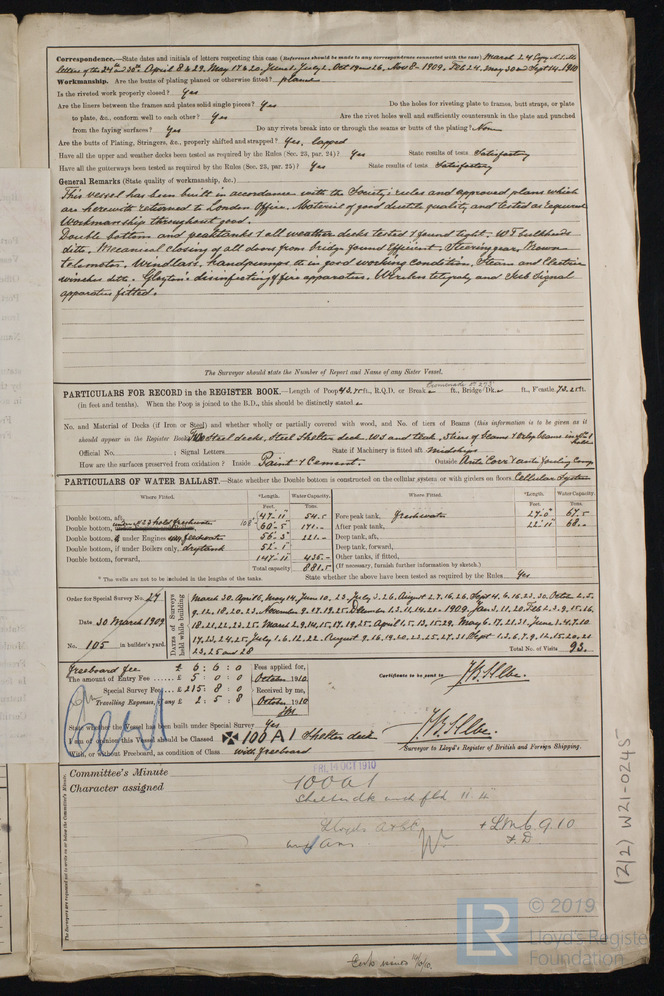 Correspondence.—State dates and initials of letters respecting this case (Reference should be made to any correspondence connected with the case) March 24 Copy
letters of the 24th and 30th. April 8 & 29. May 17 & 20. June 1. July 2. Oct 19 and 26. Nov 8 - 1909. Feb 24. May 30 and Sept 14. 1910
Workmanship. Are the butts of plating planed or otherwise fitted? planed
Is the riveted work properly closed? Yes
Are the liners between the frames and plates solid single pieces? Yes Do the holes for riveting plate to frames, butt straps, or plate
to plate, &c., conform well to each other? Yes Are the rivet holes well and sufficiently countersunk in the plate and punched
from the faying surfaces? Yes Do any rivets break into or through the seams or butts of the plating? Non
Are the butts of Plating, Stringers, &c., properly shifted and strapped? Yes, lapped
Have all the upper and weather decks been tested as required by the Rules (Sec. 23, par. 24)? Yes State results of tests Satisfactory
Have all the gutterways been tested as required by the Rules (Sec. 23, par. 25)? Yes State results of tests Satisfactory
General Remarks (State quality of workmanship, &c.)
This vessel has been built in accordance with the Society's rules and approved plans which
are herewith returned to London Office. Material of good ductile quality and tested as required
Workmanship throughout good.
Double bottom and peaktanks & all weather decks tested & found tight. WT bulkheads
ditto. Mecanical closing of all doors from bridge found Efficient. Steeringgear. Brown
telemoter. Windlass. Handpumps in good working condition. Steam and Electric
winches ditto. Clayton's disinfecting & fire apparatus. Wireless telegraphy and Sub Signal
apparatus fitted.
The Surveyor should state the Number of Report and Name of any Sister Vessel.
PARTICULARS FOR RECORD in the REGISTER BOOK.—Length of Poop 43.75 ft., R.Q.D. or Break - ft., Bridge Dk. - ft., F'castle 73.25 ft.
(in feet and tenths). When the Poop is joined to the B.D., this should be distinctly stated -
No. and Material of Decks (if Iron or Steel) and whether wholly or partially covered with wood, and No. of tiers of Beams (this information is to be given as it
should appear in the Register Book) Two Steel decks, Steel Shelter deck. WS and teak.
Official No. ; Signal Letters State if Machinery is fitted aft midships
How are the surfaces preserved from oxidation? Inside Paint & Cement. Outside Anti Corr & anti fouling Comp
PARTICULARS OF WATER BALLAST.—State whether the Double bottom is constructed on the cellular system or with girders on floors Cellular System
Where Fitted. *Length. Water Capacity. Where Fitted. *Length. Water Capacity.
Feet. Tons. Feet. Tons.
Double bottom, aft, 47-11 54.5 Fore peak tank, freshwater 27-0 67.5
Double bottom, under No 23 hold freshwater 60-5 171.- After peak tank, 22-11 68.-
Double bottom, if under Engines only freshwater 56-3 221.- Deep tank, aft,
Double bottom, if under Boilers only, drytank 52-1 Deep tank, forward,
Double bottom, forward, 147-11 435.- Other tanks, if fitted,
Total capacity 881.5 (If necessary, furnish further information by sketch.)
* The wells are not to be included in the lengths of the tanks. State whether the above have been tested as required by the Rules Yes
Order for Special Survey No. 27
Date 30 March 1909
No. 105 in builder's yard.
DATES of Surveys held while building
March 30. April 6. May 14. June 10. 23. July 3. 26. August 2.7.16.26. Sept 4.6.16.23.30. Octor 2.5.
9.12.18.20.23. November 9.17.19.25. December 2.3.11.14.21. - 1909. Jan 3.11.20. Feb 2.3.9.15.16.
18.21.22.23.25. March 2.9.14.15.17.19.25. April 1.5.13.15.29. May 6.17.21.31. June 3.4.7.10
17.23.24.25. July 1.6.12.22. August 9.16.19.20.22.25.27.31 Sept 1.3.6.7.9.12.15.20.21
23.25 and 28 Total No. of Visits 93.
Freeboard fee £ 6 : 6 : 0 Fees applied for,
The amount of Entry Fee £ 5 : 0 : 0 October 1910 Certificate to be sent to
Special Survey Fee £ 215 : 8 : 0 Received by me,
Travelling Expenses, if any £ 2 : 5 : 8 October 1910
State whether the Vessel has been built under Special Survey Yes
I am of opinion this Vessel should be Classed 100 A 1 Shelter deck
With, or without Freeboard, as condition of Class with freeboard
Surveyor to Lloyd's Register of British and Foreign Shipping.
FRI. 14 OCT 1910
Committee's Minute 100A1
Character assigned
Shelter dk with fbd 11.4
Lloyds A & CP + LMC 9.10
F.D
The Surveyors are requested not to write on or below the Committee's Minute.
(2/2) W21-0245
LR © 2019
Lloyd's Register
Foundation